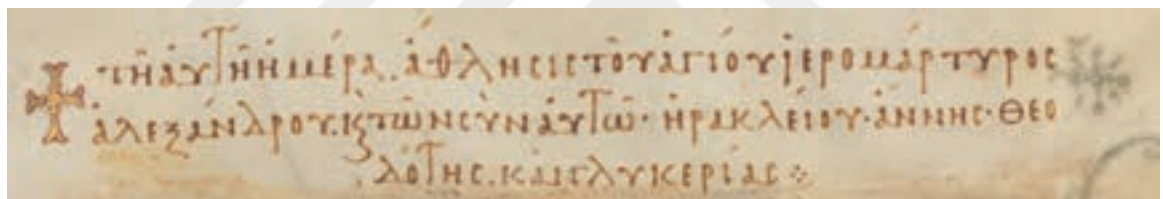 τῆ ἀυτῆ ἡμέρα. ἄθλησις τοῦ ἁγίου ἱερομάρτυρος
ἀλεξάνδρου. κ τῶν σὺν ἀυτῶ· ἡρακλείου· ἄννης· Θεο
δότης. καὶ γλυκερίας